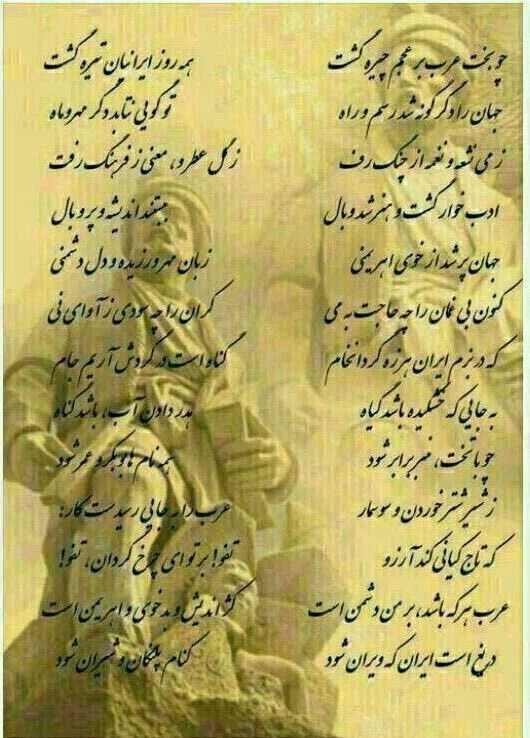 چو بخت عرب بر عجم چیره گشت همه روز ایرانیان تیره گشت
جهان را دگرگونه شد رسم و راه تو گویی نتابد دگر مهر و ماه
ز می نشعه و نغمه از چنگ رفت ز گل عطر و، معنی ز فرهنگ رفت
ادب خوار گشت و هنر شد وبال ببستند اندیشه و پر و بال
جهان پر شد از خوی اهریمنی زبان مهر ورزیده و دل دشمنی
کنون بی غمان را چه حاجت به می کران را چه سودی ز آوای نی
که در بزم ایران هرزه گردان خام گناه است در گردش آریم جام
به جایی که خشکیده باشد گیاه هدر دادن آب، باشد گناه
چو با تخت، منبر برابر شود همه نام ها بوبکر و عمر شود
ز شیر شتر خوردن و سوسمار عرب را به جایی رسیدست کار:
که تاج کیانی کند آرزو تفو! بر تو ای چرخ گردان، تفو!
عرب هر که باشد، بر من دشمن است کژ اندیش و بد خوی و اهریمن است
دریغ است ایران که ویران شود کنام پلنگان و شیران شود